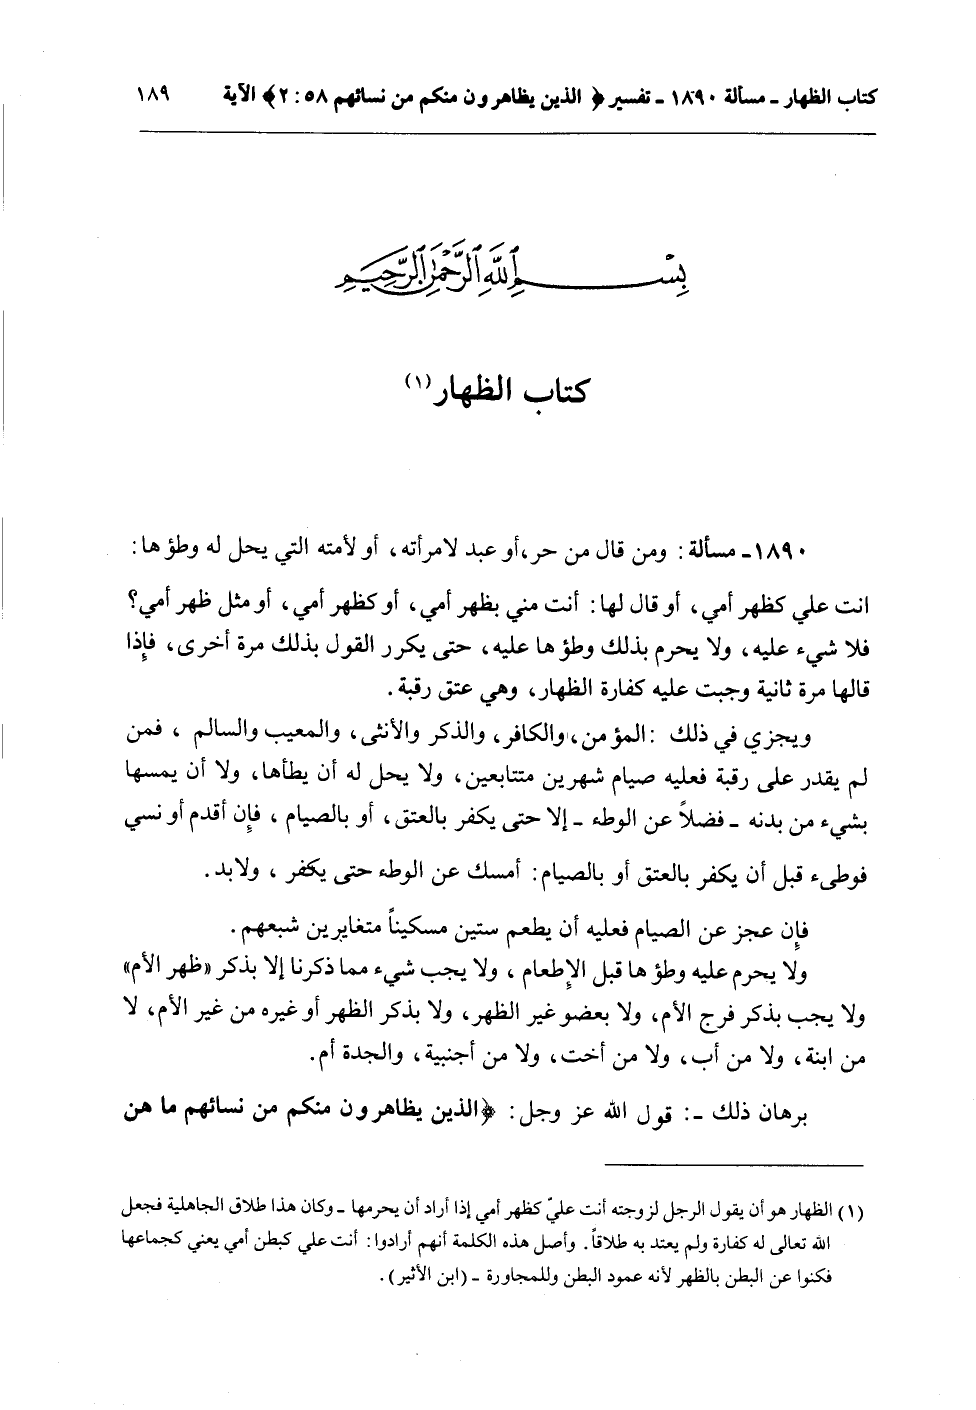 كتاب الظهار ـ مسألة ١٨٩٠ ـ تفسير ﴿ الذين يظاهرون منكم من نسائهم ٥٨ : ٢ ﴾ الآية ١٨٩
بسم الله الرحمن الرحيم
كتاب الظهار (١)
١٨٩٠ ـ مسألة : ومن قال من حر ، أو عبد لامرأته ، أو لأمته التي يحل له وطؤها :
انت علي كظهر أمي ، أو قال لها : أنت مني بظهر أمي ، أو كظهر أمي ، أو مثل ظهر أمي ؟
فلا شيء عليه ، ولا يحرم بذلك وطؤها عليه ، حتى يكرر القول بذلك مرة أخرى ، فإذا
قالها مرة ثانية وجبت عليه كفارة الظهار ، وهي عتق رقبة .
ويجزي في ذلك : المؤمن ، والكافر ، والذكر والأنثى ، والمعيب والسالم ، فمن
لم يقدر على رقبة فعليه صيام شهرين متتابعين ، ولا يحل له أن يطأها ، ولا أن يمسها
بشيء من بدنه ـ فضلاً عن الوطء ـ إلا حتى يكفر بالعتق ، أو بالصيام ، فإن أقدم أو نسي
فوطىء قبل أن يكفر بالعتق أو بالصيام : أمسك عن الوطء حتى يكفر ، ولابد .
فإن عجز عن الصيام فعليه أن يطعم ستين مسكيناً متغايرين شبعهم .
ولا يحرم عليه وطؤها قبل الإطعام ، ولا يجب شيء مما ذكرنا إلا بذكر «ظهر الأم»
ولا يجب بذكر فرج الأم ، ولا بعضو غير الظهر ، ولا بذكر الظهر أو غيره من غير الأم ، لا
من ابنة ، ولا من أب ، ولا من أخت ، ولا من أجنبية ، والجدة أم .
برهان ذلك ـ : قول الله عز وجل : ﴿الذين يظاهرون منكم من نسائهم ما هن
(١) الظهار هو أن يقول الرجل لزوجته أنت عليّ كظهر أمي إذا أراد أن يحرمها ـ وكان هذا طلاق الجاهلية فجعل
الله تعالى له كفارة ولم يعتد به طلاقاً . وأصل هذه الكلمة أنهم أرادوا : أنت علي كبطن أمي يعني كجماعها
فكنوا عن البطن بالظهر لأنه عمود البطن وللمجاورة ـ (ابن الأثير) .